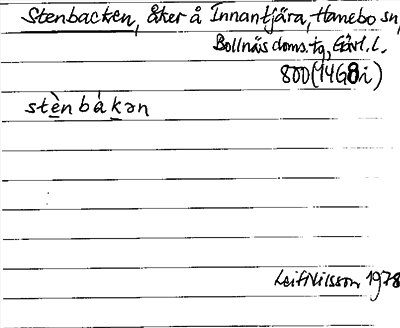 Stenbacken, åker å Innantjära, Hanebo sn,
Bollnäs doms. tg, Gävl. l.
800 (14G8i)
stènbákǝn
Leif Nilsson 1978